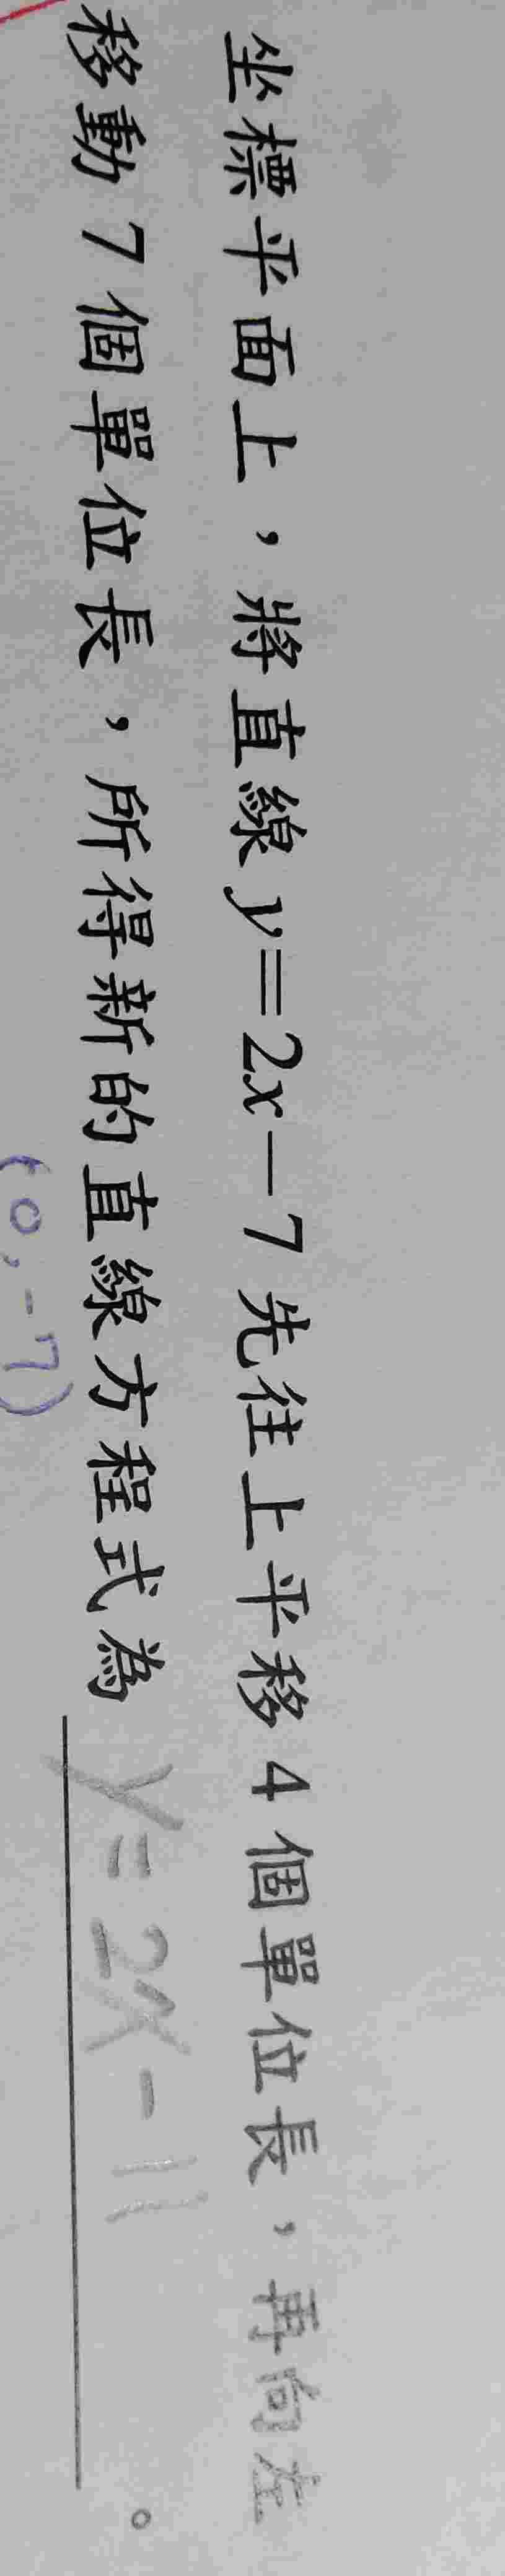 坐標平面上，將直線y=2x-7先往上平移4個單位長，再向左
移動7個單位長，所得新的直線方程式為 y=2x-11 。
(0,-7)